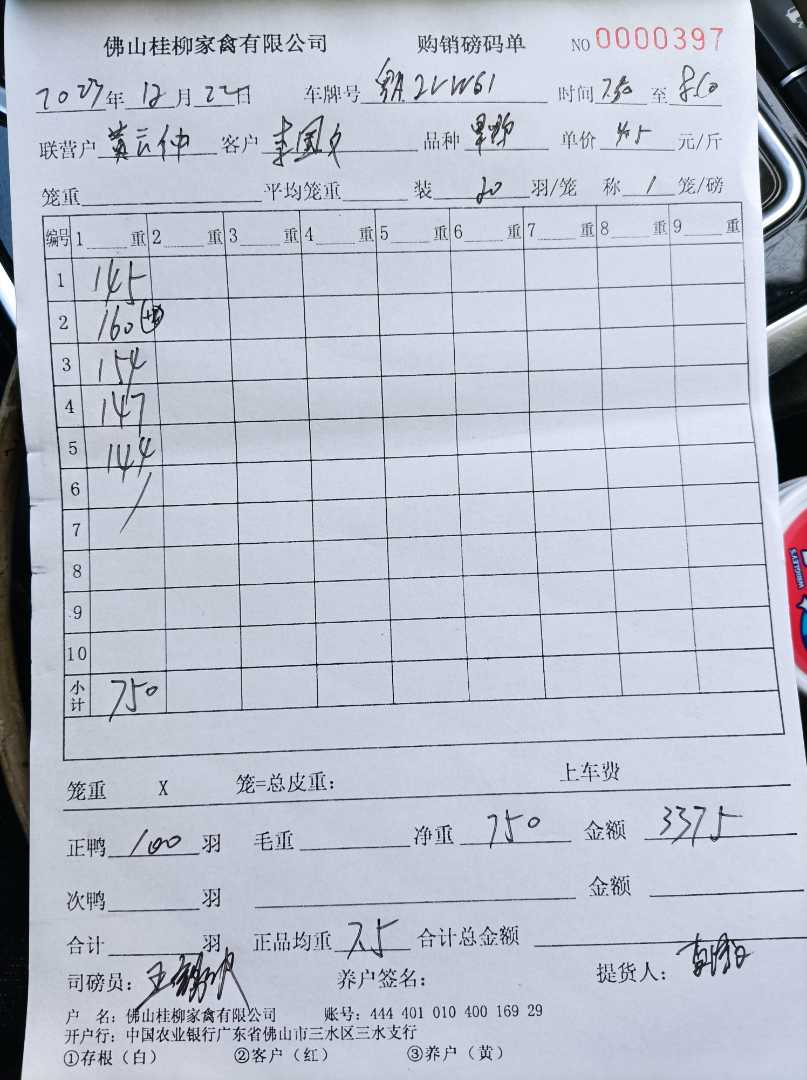 佛山桂柳家禽有限公司 购销磅码单 NO 0000397
2023年 12月 22日 车牌号 粤A2VW61 时间 7.50 至 8.10
联营户 黄云仲 客户 李国文 品种 单价 4.5 元/斤
笼重 平均笼重 装 20 羽/笼 称 1 笼/磅
编号 1 重 2 重 3 重 4 重 5 重 6 重 7 重 8 重 9 重
1 145
2 160
3 154
4 147
5 144
6 /
7
8
9
10
小计 750
笼重 X 笼=总皮重: 上车费
正鸭 100 羽 毛重 净重 750 金额 3375
次鸭 羽 金额
合计 羽 正品均重 7.5 合计总金额
司磅员: 王 养户签名: 提货人:
户 名: 佛山桂柳家禽有限公司 账号: 444 401 010 400 169 29
开户行: 中国农业银行广东省佛山市三水区三水支行
①存根(白) ②客户(红) ③养户(黄)